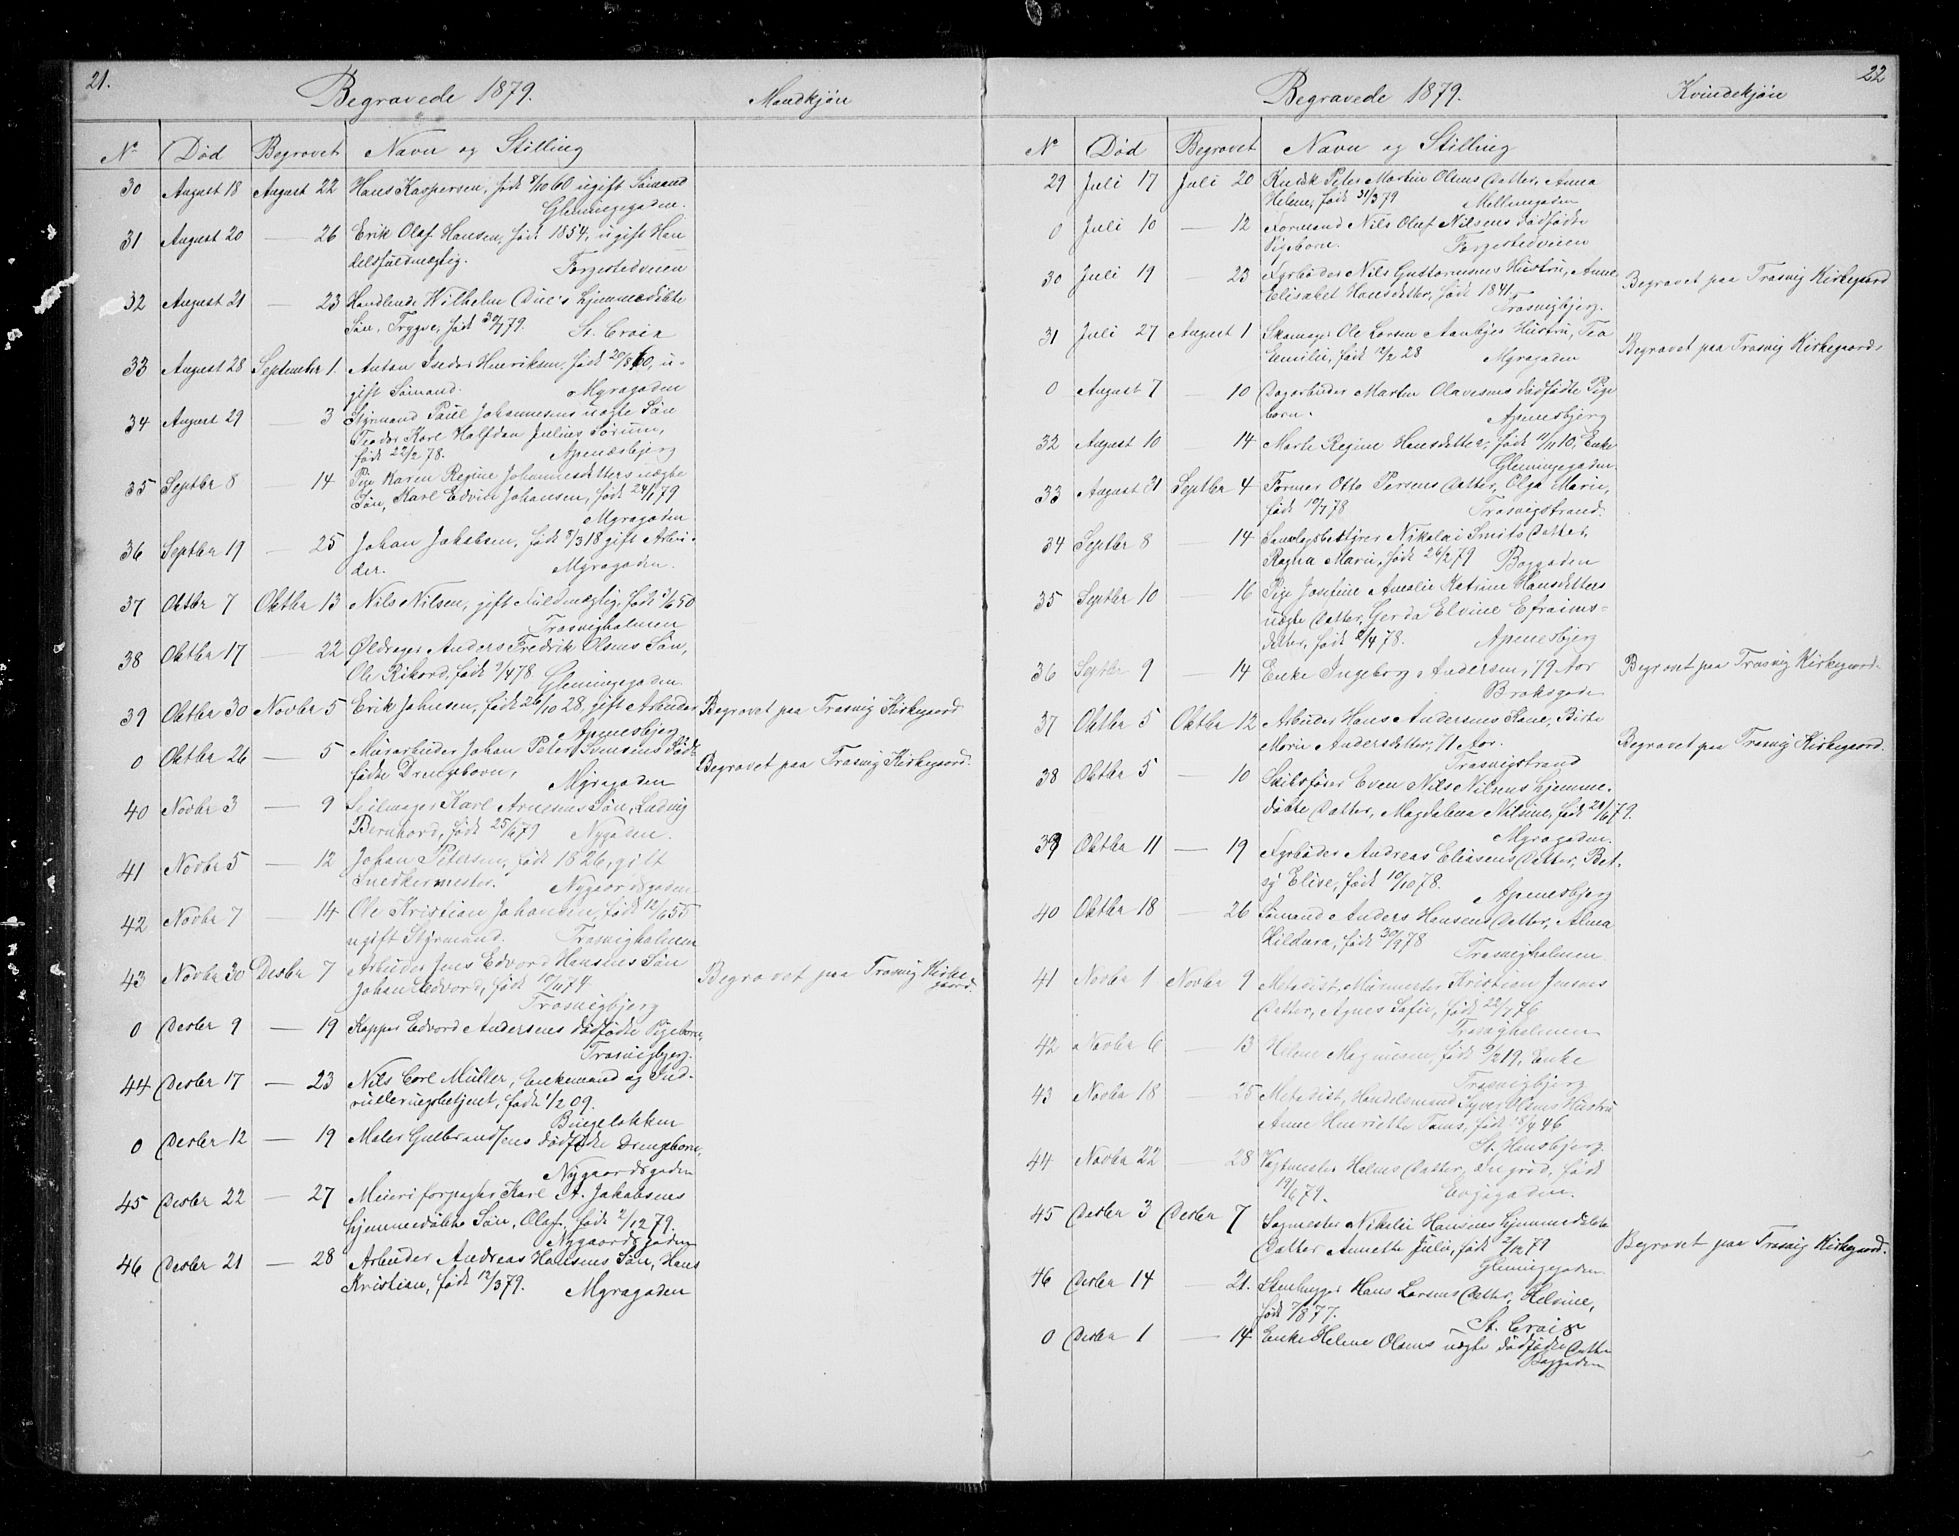 21.
Begravede 1879. Mandkjøn
No Død Begravet Navn og Stilling
30 August 18 August 22 Hans Kaspersen, født 8/10 60 ugift Sømand
Glemmegaden.
31 August 20 — 26 Erik Olaf Hansen, født 1854, ugift Han
delsfuldmægtig. Torgestedveien
32 August 21 — 23 Handlende Wilhelm Due's hjemmedøbte
Søn, Trygve, født 30/7 79. St. Croix
33 August 28 September 1. Anton Henriksen, født 20/8 60, u-
gift Sømand. Myragaden
34 August 29 3 Styrmand Paul Johannesens uægte Søn
Teodor Karl Halfdan Julius Sørum,
født 22/2 78. Apenæsbjerg
35 Septbr 8 — 14 Pige Karen Regine Johannesdatters uægte
Søn, Karl Edvin Johansen, født 24/1 79
Myragaden
36 Septbr 19 — 25 Johan Jakobsen, født 8/3 18 gift Arbei-
der. Myragaden.
37 Oktbr 7 Oktbr 13 Nils Nilsen, gift Fuldmægtig, født 3/6 50
Trosvigholmen
38 Oktbr 17 — 22 Anders Fredrik Olsens Søn,
Ole Rikard, født 1/4 78. Glemmegaden.
39 Oktbr 30 Novbr 5 Erik Johnsen, født 26/10 28, gift Arbeider Begravet paa Trosvig Kirkegaard
Apenesbjerg
0 Oktbr 26 — 5 Murarbeider Johan Peter Svensens død-
fødte Drengebarn, Myragaden Begravet paa Trosvig Kirkegaard.
40 Novbr 3 — 9 Seilmager Karl Arnesens Søn, Ludvig
Bernhard, født 25/6 79 Nygaden.
41 Novbr 5 — 12 Johan Petersen, født 1826, gift
Snedkermester. Nygaardsgaden
42 Novbr 7 — 14 Ole Kristian Johansen, født 12/6 55
ugift Styrmand. Trosvigholmen
43 Novbr 30 Desbr 7 Arbeider Jens Edvard Hansens Søn Begravet paa Trosvig Kirke
gaard.
Johan Edvard, født 10/11 74
Trosvigbjerg
0 Desbr 9 — 19 Kapper Edvard Andersens dødfødte Pigebarn,
Trosvigbjerg.
44 Desbr 17 — 23 Nils Carl Müller, Enkemand og Ind-
rulleringsbetjent, født 1/2 09.
Bingeløkken
0 Desbr 12 — 19 Maler Gulbrandsens dødfødte Drengebarn,
Nygaardsgaden
45 Desbr 22 — 27 Meieriforpagter Karl A. Jakobsens
hjemmedøbte Søn, Olaf, født 2/12 79.
Nygaardsgaden
46 Desbr 21 — 28 Arbeider Andreas Hansens Søn, Hans
Kristian, født 12/3 79. Myragaden
22
Begravede 1879. Kvindekjøn
No Død Begravet Navn og Stilling
29 Juli 17 Juli 20 Kudsk Peter Martin Olsens Datter, Anna
Helene, født 31/3 79 Mellemgaden
0 Juli 10 — 12 Formand Nils Oluf Nilsens dødfødte
Pigebarn. Torgestedveien
30 Juli 19 — 23 Fyrbøder Nils Gustavsens Hustru, Anne
Elisabet Hansdatter, født 1841. Begravet paa Trosvig Kirkegaard
Trosvigbjerg.
31 Juli 27 August 1 Skomager Ole Larsen Aanbys Hustru, Tea
Emilie, født 12/2 28 Myragaden Begravet paa Trosvig Kirkegaard.
0 August 7 — 10 Dagarbeider Martin Olavesens dødfødte Pige
barn. Apenesbjerg
32 August 10 — 14 Marte Regine Hansdatter, født 11/11 10, Enke
Glemmegaden.
33 August 31 Septbr 4 Former Otto Persens Datter, Olga Marie,
født 17/7 78 Trosvigstrand.
34 Septbr 8 — 14 Samlagsbestyrer Nikolai Smits Datter,
Ragna Marie, født 26/2 79 Baggaden
35 Septbr 10 — 16 Pige Josefine Amalie Katrine Hansdatters
uægte Datter, Gerda Elvine Efraims-
datter, født 2/4 78. Apenesbjerg
36 Septbr 9 — 14 Enke Ingeborg Andersen, 79 Aar Begravet paa Trosvig Kirkegaard.
Braksgade
37 Oktbr 5 Oktbr 12 Arbeider Hans Andersens Kone, Birte
Marie Andersdatter, 71 Aar. Begravet paa Trosvig Kirkegaard.
Trosvigstrand
38 Oktbr 5 — 10 Skibsfører Even Nils Nilsens hjemme-
døbte Datter, Magdalena Nilsine, født 28/6 79.
Myragaden.
39 Oktbr 11 — 19 Fyrbøder Andreas Eliasens Datter, Bet-
sy Elise, født 10/10 78.
Apenesbjerg
40 Oktbr 18 — 26 Sømand Anders Hansens Datter, Alma
Hildura, født 30/9 78
Trosvigholmen
41 Novbr 1 Novbr 9 Metodist, Murmester Kristian Jensens
Datter, Agnes Sofie, født 22/7 76
Trosvigholmen
42 Novbr 6 — 13 Helene Magnusen, født 9/2 19, Enke
Trosvigbjerg
43 Novbr 18 — 25 Metodist, Handelsmand Syver Olsens Hustru
Anne Henriette Tams, født 18/4 46
St. Hansbjerg.
44 Novbr 22 — 28 Vagtmester Holms Datter, Ingrid, født
19/6 79. Evjegaden.
45 Desbr 3 Desbr 7 Sagmester Nikolai Hansens hjemmedøbte
Datter Annette Julie, født 2/12 79 Begravet paa Trosvig Kirkegaard.
Glemmegaden.
46 Desbr 14 — 21. Stenhugger Hans Larsens Datter, Helvine,
født 7/8 77.
St. Croix
0 Desbr 1 — 14 Enke Helene Olsens uægte dødfødte Datter
Baggaden